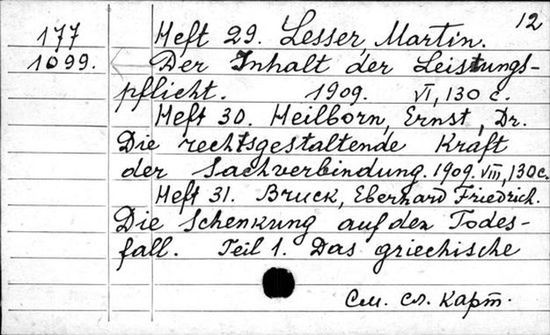 12
177
1099.
Heft 29. Lesser, Martin.
Der Inhalt der Leistungs-
pflicht. 1909. VI, 130 c.
Heft 30. Heilborn, Ernst, Dr.
Die rechtsgestaltende Kraft
der Sachverbindung. 1909. VIII, 130 c.
Heft 31. Bruck, Eberhard Friedrich.
Die Schenkung auf den Todes-
fall. Teil 1. Das griechische
См. сл. карт.